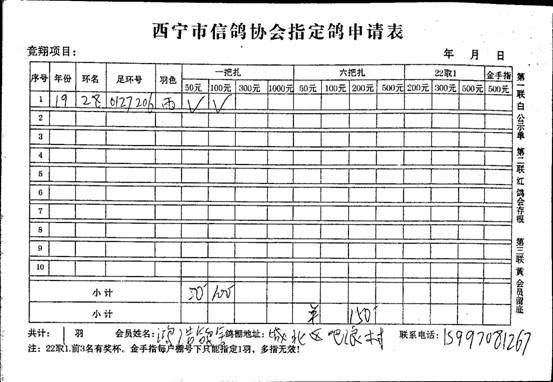 西宁市信鸽协会指定鸽申请表
竞翔项目: 年 月 日
序号 年份 环名 足环号 羽色 一把扎 六把扎 22取1 金手指
50元 100元 300元 1000元 50元 100元 200元 500元 200元 300元 500元 500元
1 19 28 0127206 雨 √ √
2
3
4
5
6
7
8
9
10
小计 50 100
小计 150
共计: 1 羽 会员姓名: 鸽棚地址: 城北区 村 联系电话: 15997081267
注: 22取1.前3名有奖杯。金手指每户棚号下只能指定1羽,多指无效!
第一联 白 公示单 第二联 红 鸽会存根 第三联 黄 会员留底